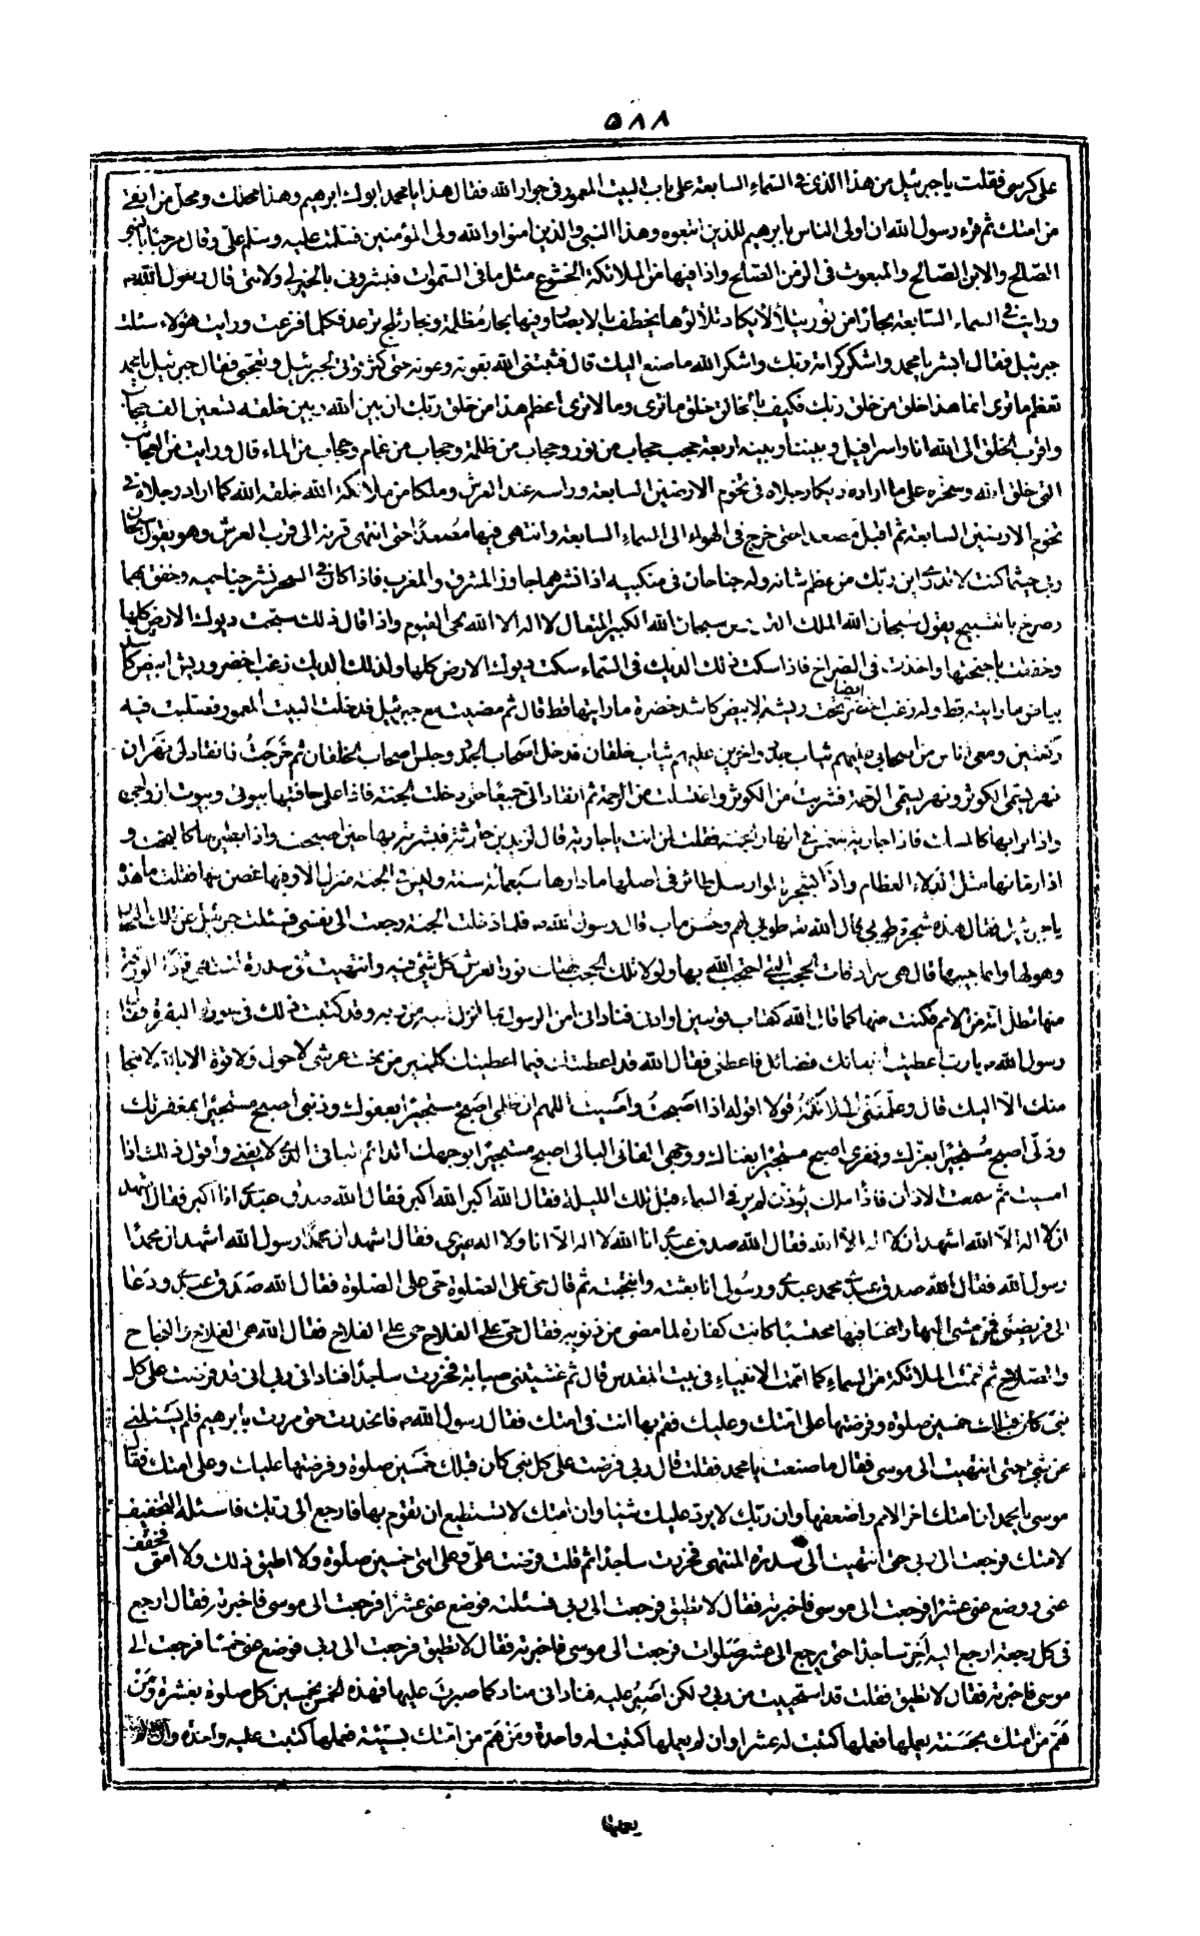 ٥٨٨
على كرسى فقلت يا جبرئيل من هذا الذى فى السماء السابعة على باب البيت المعمور فى جوار الله فقال هذا يا محمد ابوك ابرهيم وهذا محلك ومحل من اتقى
من امتك ثم قرء رسول الله ان اولى الناس بابرهيم للذين اتبعوه وهذا النبى والذين امنوا والله ولى المؤمنين فسلمت عليه وسلم على وقال مرحبا بالنبى
الصالح والابن الصالح والمبعوث فى الزمن الصالح واذا فيها من الملائكة الخشوع مثل ما فى السموات فبشرونى بالخير لى ولامتى قال رسول الله ص
ورايت فى السماء السابعة بحارا من نور يتلألأ يكاد تلألؤها يخطف بالابصار وفيها بحار مظلمة وبحار ثلج ترعد فكلما فزعت ورايت هؤلاء سئلت
جبرئيل فقال ابشر يا محمد واشكر كرامة ربك واشكر الله ما صنع اليك قال فثبتنى الله بقوته وعونه حتى كثر قولى لجبرئيل وتعجبى فقال جبرئيل يا محمد
تعظم ما ترى انما هذا خلق من خلق ربك فكيف بالخالق خلق ما ترى وما لا ترى اعظم هذا من خلق ربك ان بين الله وبين خلقه تسعين الف حجاب
واقرب الخلق الى الله انا واسرافيل وبيننا وبينه اربعة حجب حجاب من نور وحجاب من ظلمة وحجاب من غمام وحجاب من الماء قال ورايت من العجائب
التى خلق الله وسخره على ما اراده ديكا رجلاه فى تخوم الارضين السابعة وراسه عند العرش وملكا من ملائكة الله خلقه الله كما اراد رجلاه فى
تخوم الارضين السابعة ثم اقبل مصعدا حتى خرج فى الهواء الى السماء السابعة وانتهى فيها مصعدا حتى انتهى قرنه الى قرب العرش وهو يقول سبحان
ربى حيثما كنت لا تدرى اين ربك من عظم شانه وله جناحان فى منكبيه اذا نشرهما جاوز المشرق والمغرب فاذا كان فى السحر نشر جناحيه وخفق بهما
وصرخ بالتسبيح يقول سبحان الله الملك القدوس سبحان الله الكبير المتعال لا اله الا الله الحى القيوم واذا قال ذلك سبحت ديوك الارض كلها
وخفقت باجنحتها واخذت فى الصراخ فاذا سكت ذلك الديك فى السماء سكت ديوك الارض كلها ولذلك الديك زغب اخضر وريش ابيض كاشد
بياض ما رايته قط وله زغب اخضر ايضا تحت ريشه الابيض كاشد خضرة ما رايتها قط قال ثم مضيت مع جبرئيل فدخلت البيت المعمور فصليت فيه
ركعتين ومعى اناس من اصحابى عليهم ثياب جدد واخرين عليهم ثياب خلقان فدخل اصحاب الجدد وجلس اصحاب الخلقان ثم خرجت فانقاد لى نهران
نهر يسمى الكوثر ونهر يسمى الرحمة فشربت من الكوثر واغتسلت من الرحمة ثم انقادا لى جميعا حتى دخلت الجنة فاذا على حافتيها بيوتى وبيوت ازواجى
واذا ترابها كالمسك فاذا جارية تنغمس فى انهار الجنة فقلت لمن انت يا جارية قال لزيد بن حارثة فبشرته بها حين اصبحت واذا بطيرها كالبخت و
اذا رمانها مثل الدلاء العظام واذا الشجرة لو ارسل طائر فى اصلها ما دارها سبعمائة سنة وليس فى الجنة منزل الا وفيها غصن منها فقلت ما هذه
يا جبرئيل فقال هذه شجرة طوبى قال الله تعه طوبى لهم وحسن ماب قال رسول الله ص فلما دخلت الجنة رجعت الى نفسى فسئلت جبرئيل عن تلك البحار
وهولها واعاجيبها قال هى سرادقات الحجب التى احتجب الله بها ولولا تلك الحجب لهتك نور العرش كل شئ فيه وانتهيت الى سدرة المنتهى فاذا الورقة
منها تظل امة من الامم فكنت منها كما قال الله كقاب قوسين او ادنى فنادانى امن الرسول بما انزل اليه من ربه وقد كتبت ذلك فى سورة البقرة فقال
رسول الله ص يا رب اعطيت انبيائك فضائل فاعطنى فقال الله قد اعطيتك فيما اعطيتك كلمتين من تحت عرشى لا حول ولا قوة الا بالله لا منجا
منك الا اليك قال وعلمتنى الملائكة قولا اقوله اذا اصبحت وامسيت اللهم ان ظلمى اصبح مستجيرا بعفوك وذنبى اصبح مستجيرا بمغفرتك
وذلى اصبح مستجيرا بعزك وفقرى اصبح مستجيرا بغناك ووجهى الفانى البالى اصبح مستجيرا بوجهك الدائم الباقى الذى لا يفنى واقول ذلك اذا
امسيت ثم سمعت الاذان فاذا ملك يؤذن لم ير فى السماء قبل تلك الليلة فقال الله اكبر الله اكبر فقال الله صدق عبدى انا اكبر فقال اشهد
ان لا اله الا الله اشهد ان لا اله الا الله فقال الله صدق عبدى انا الله لا اله الا انا ولا اله غيرى فقال اشهد ان محمدا رسول الله اشهد ان محمدا
رسول الله فقال الله صدق عبدى محمد عبدى ورسولى انا بعثته وانتجبته ثم قال حى على الصلوة حى على الصلوة فقال الله صدق عبدى ودعا
الى فريضتى فمن مشى اليها راغبا فيها محتسبا كانت كفارة لما مضى من ذنوبه فقال حى على الفلاح حى على الفلاح فقال الله هى الفلاح والنجاح
والصلاح ثم اممت الملائكة فى السماء كما اممت الانبياء فى بيت المقدس قال ثم غشيتنى صبابة فخررت ساجدا فنادانى ربى انى قد فرضت على كل
نبى كان قبلك خمسين صلوة وفرضتها على امتك وعليك فقم بها انت فى امتك فقال رسول الله ص فانحدرت حتى مررت بابرهيم فلم يسئلنى
عن شئ حتى انتهيت الى موسى فقال ما صنعت يا محمد فقلت قال ربى فرضت على كل نبى كان قبلك خمسين صلوة وفرضتها عليك وعلى امتك فقال
موسى يا محمد ان امتك اخر الامم واضعفها وان ربك لا يرد عليك شيئا وان امتك لا تستطيع ان تقوم بها فارجع الى ربك فاسئله التخفيف
لامتك فرجعت الى ربى حتى انتهيت الى سدرة المنتهى فخررت ساجدا ثم قلت فرضت على وعلى امتى خمسين صلوة ولا اطيق ذلك ولا امتى فخفف
عنى فوضع عنى عشرا فرجعت الى موسى فاخبرته فقال لا تطيق فرجعت الى ربى فسئلته فوضع عنى عشرا فرجعت الى موسى فاخبرته فقال ارجع
فى كل رجعة ارجع اليه اخر ساجدا حتى رجع الى عشر صلوات فرجعت الى موسى فاخبرته فقال لا تطيق فرجعت الى ربى فوضع عنى خمسا فرجعت الى
موسى فاخبرته فقال لا تطيق فقلت قد استحييت من ربى ولكن اصبر عليه فنادانى مناد كما صبرت عليها فهذه الخمس بخمسين كل صلوة بعشرة ومن
هم من امتك بحسنة يعملها فعملها كتبت له عشرا وان لم يعملها كتبت له واحدة ومن هم من امتك بسيئة فعملها كتبت عليه واحدة وان لم
يعملها